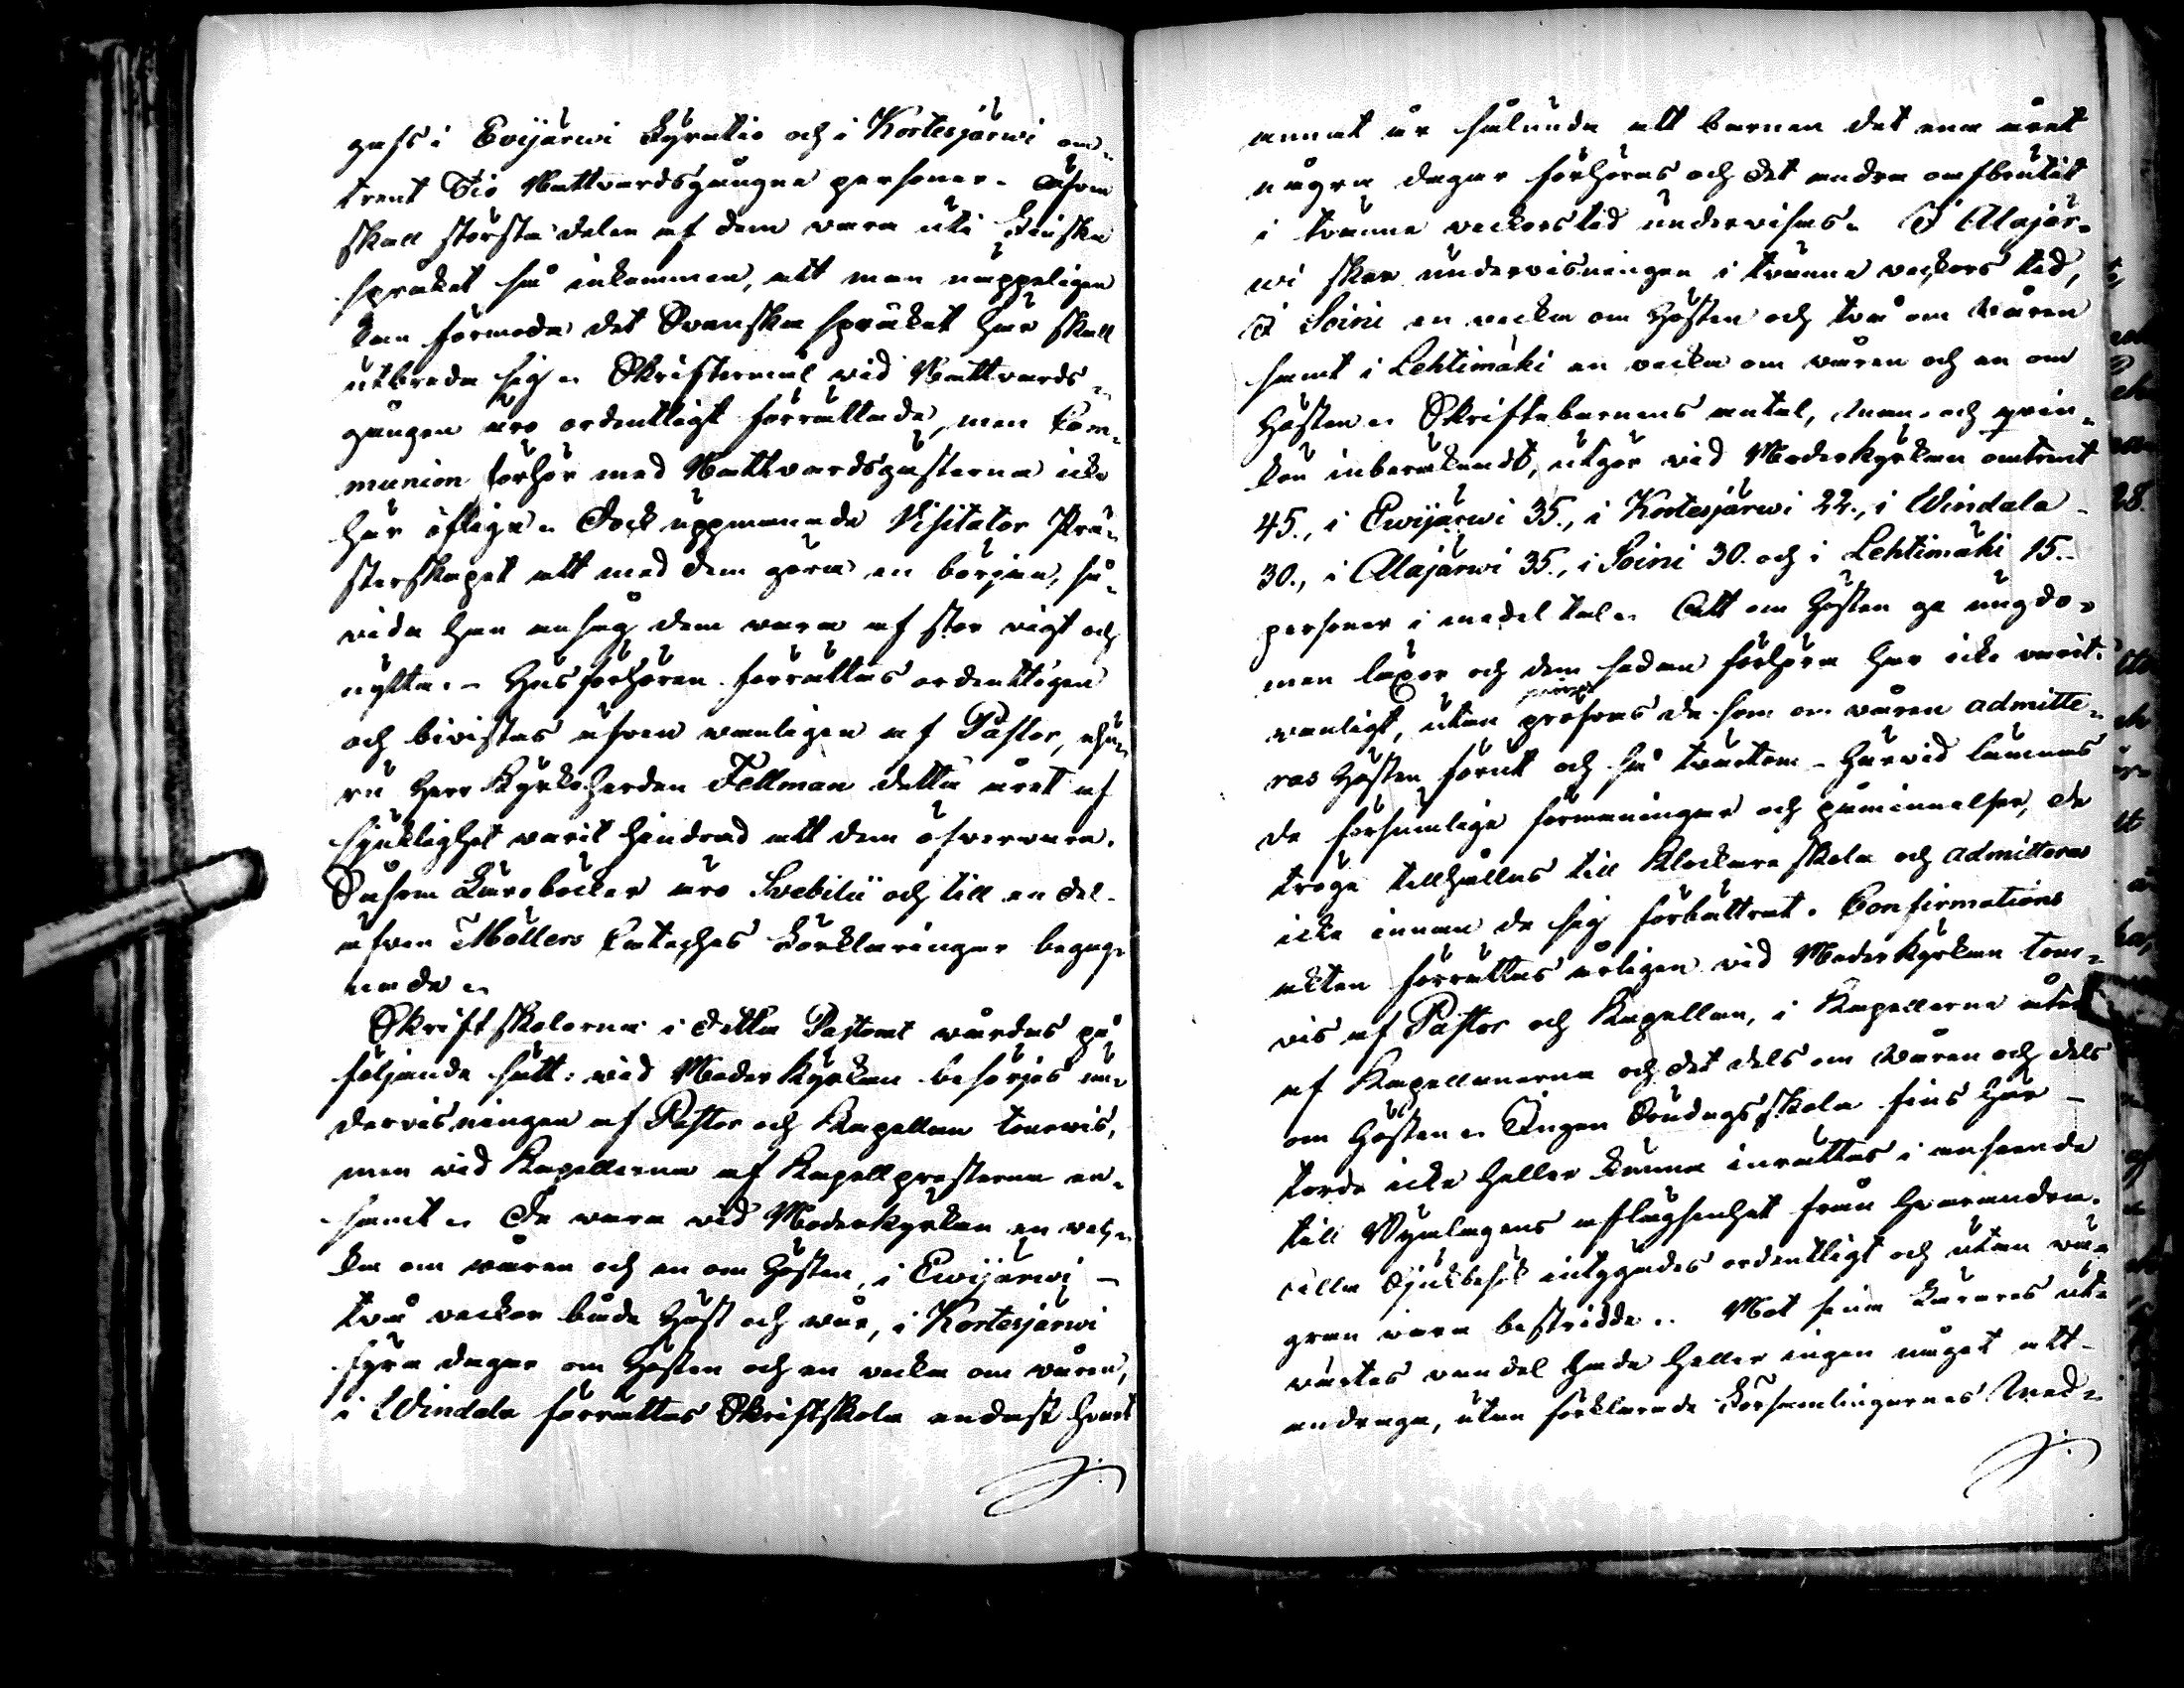 gafs i Evijärwi Fyratio och i Kortesjärwi om-
trent Tio Nattvardsgångna personer. Äfven
skall största delen af dem vara uti Finska
språket så inkommen, att man näppeligen
kan förmoda det Svenska språket här skall
utbreda sig. Skriftermål vid Nattvards-
gången äro ordentligt förrättade, men Com-
munion förhör med Nattvardsgästerna icke
här öflige. Dock uppmanade Visitator Prä-
sterskapet att med dem göra en början, så-
vida han ansåg dem vara af stor vigt och
nytta. - Husförhören förrättas ordentligen
och bivistas äfven vanligen af Pastor, ehu-
ru Herr Kyrkoherden Fellman detta året af
sjuklighet varit hindrad att dem öfvervara.
Såsom Läroböcker äro Svebilii och till en del
äfven Möllers Cateches Förklaringar begag-
nade.
Skriftskolorna i detta Pastorat vårdas på
följande sätt: vid Moderkyrkan besörjes un-
dervisningen af Pastor och Kapellan tourvis,
men vid Kapellerna af Kapellpresterna en-
samt. De vara vid Moderkyrkan en vec-
ka om våren och en om hösten, i Ewijärwi -
två veckor både höst och vår, i Kortesjärwi
fyra dagar om hösten och en vecka om våren,
i Windala förrättas Skriftskola endast hvart
annat år sålunda att barnen det ena året
några dagar förhöras och det andra oafbrutit
i tvänne veckors tid undervisas. I Alajär-
wi sker undervisningen i tvänne veckors tid,
I Soini en vecka om hösten och två om våren
samt i Lehtimäki en vecka om våren och en om
Hösten. Skriftebarnens antal, man- och qvin-
kön inberäknadt, utgör vid Moderkyrkan omtrent
45., i Ewijärwi 35., i Kortesjärwi 22., i Windala -
30., i Alajärwi 35., i Soini 30. och i Lehtimäki 15.-
personer i medel tal. Att om hösten ge ungdo-
men läxor och dem sedan förhöra har icke varit
vanligt, utan pröfvas de som om våren admitte-
ras hösten förut och så tvärtom - Härvid lämnas
de försumlige förmaningar och påminnelser, de
tröge tillhållas till Klockareskola och admitteras
icke innan de sig förbättrat. Confirmations
akten förrättas årligen vid Moderkyrkan tour-
vis af Pastor och Kapellan, i Kapellerna åter
af Kapellanerna och det dels om våren och dels
om hösten. Ingen Söndagsskola fins här -
torde icke heller kunna inrättas i anseende
till Byalagens aflägsenhet från hvarandra.
Alla Sjukbesök intygades ordentligt och utan vä-
gran vara bestridde. Mot sina Lärares ut-
värtes vandel hade heller ingen något att
andraga, utan förklarade Församlingarnes Med-